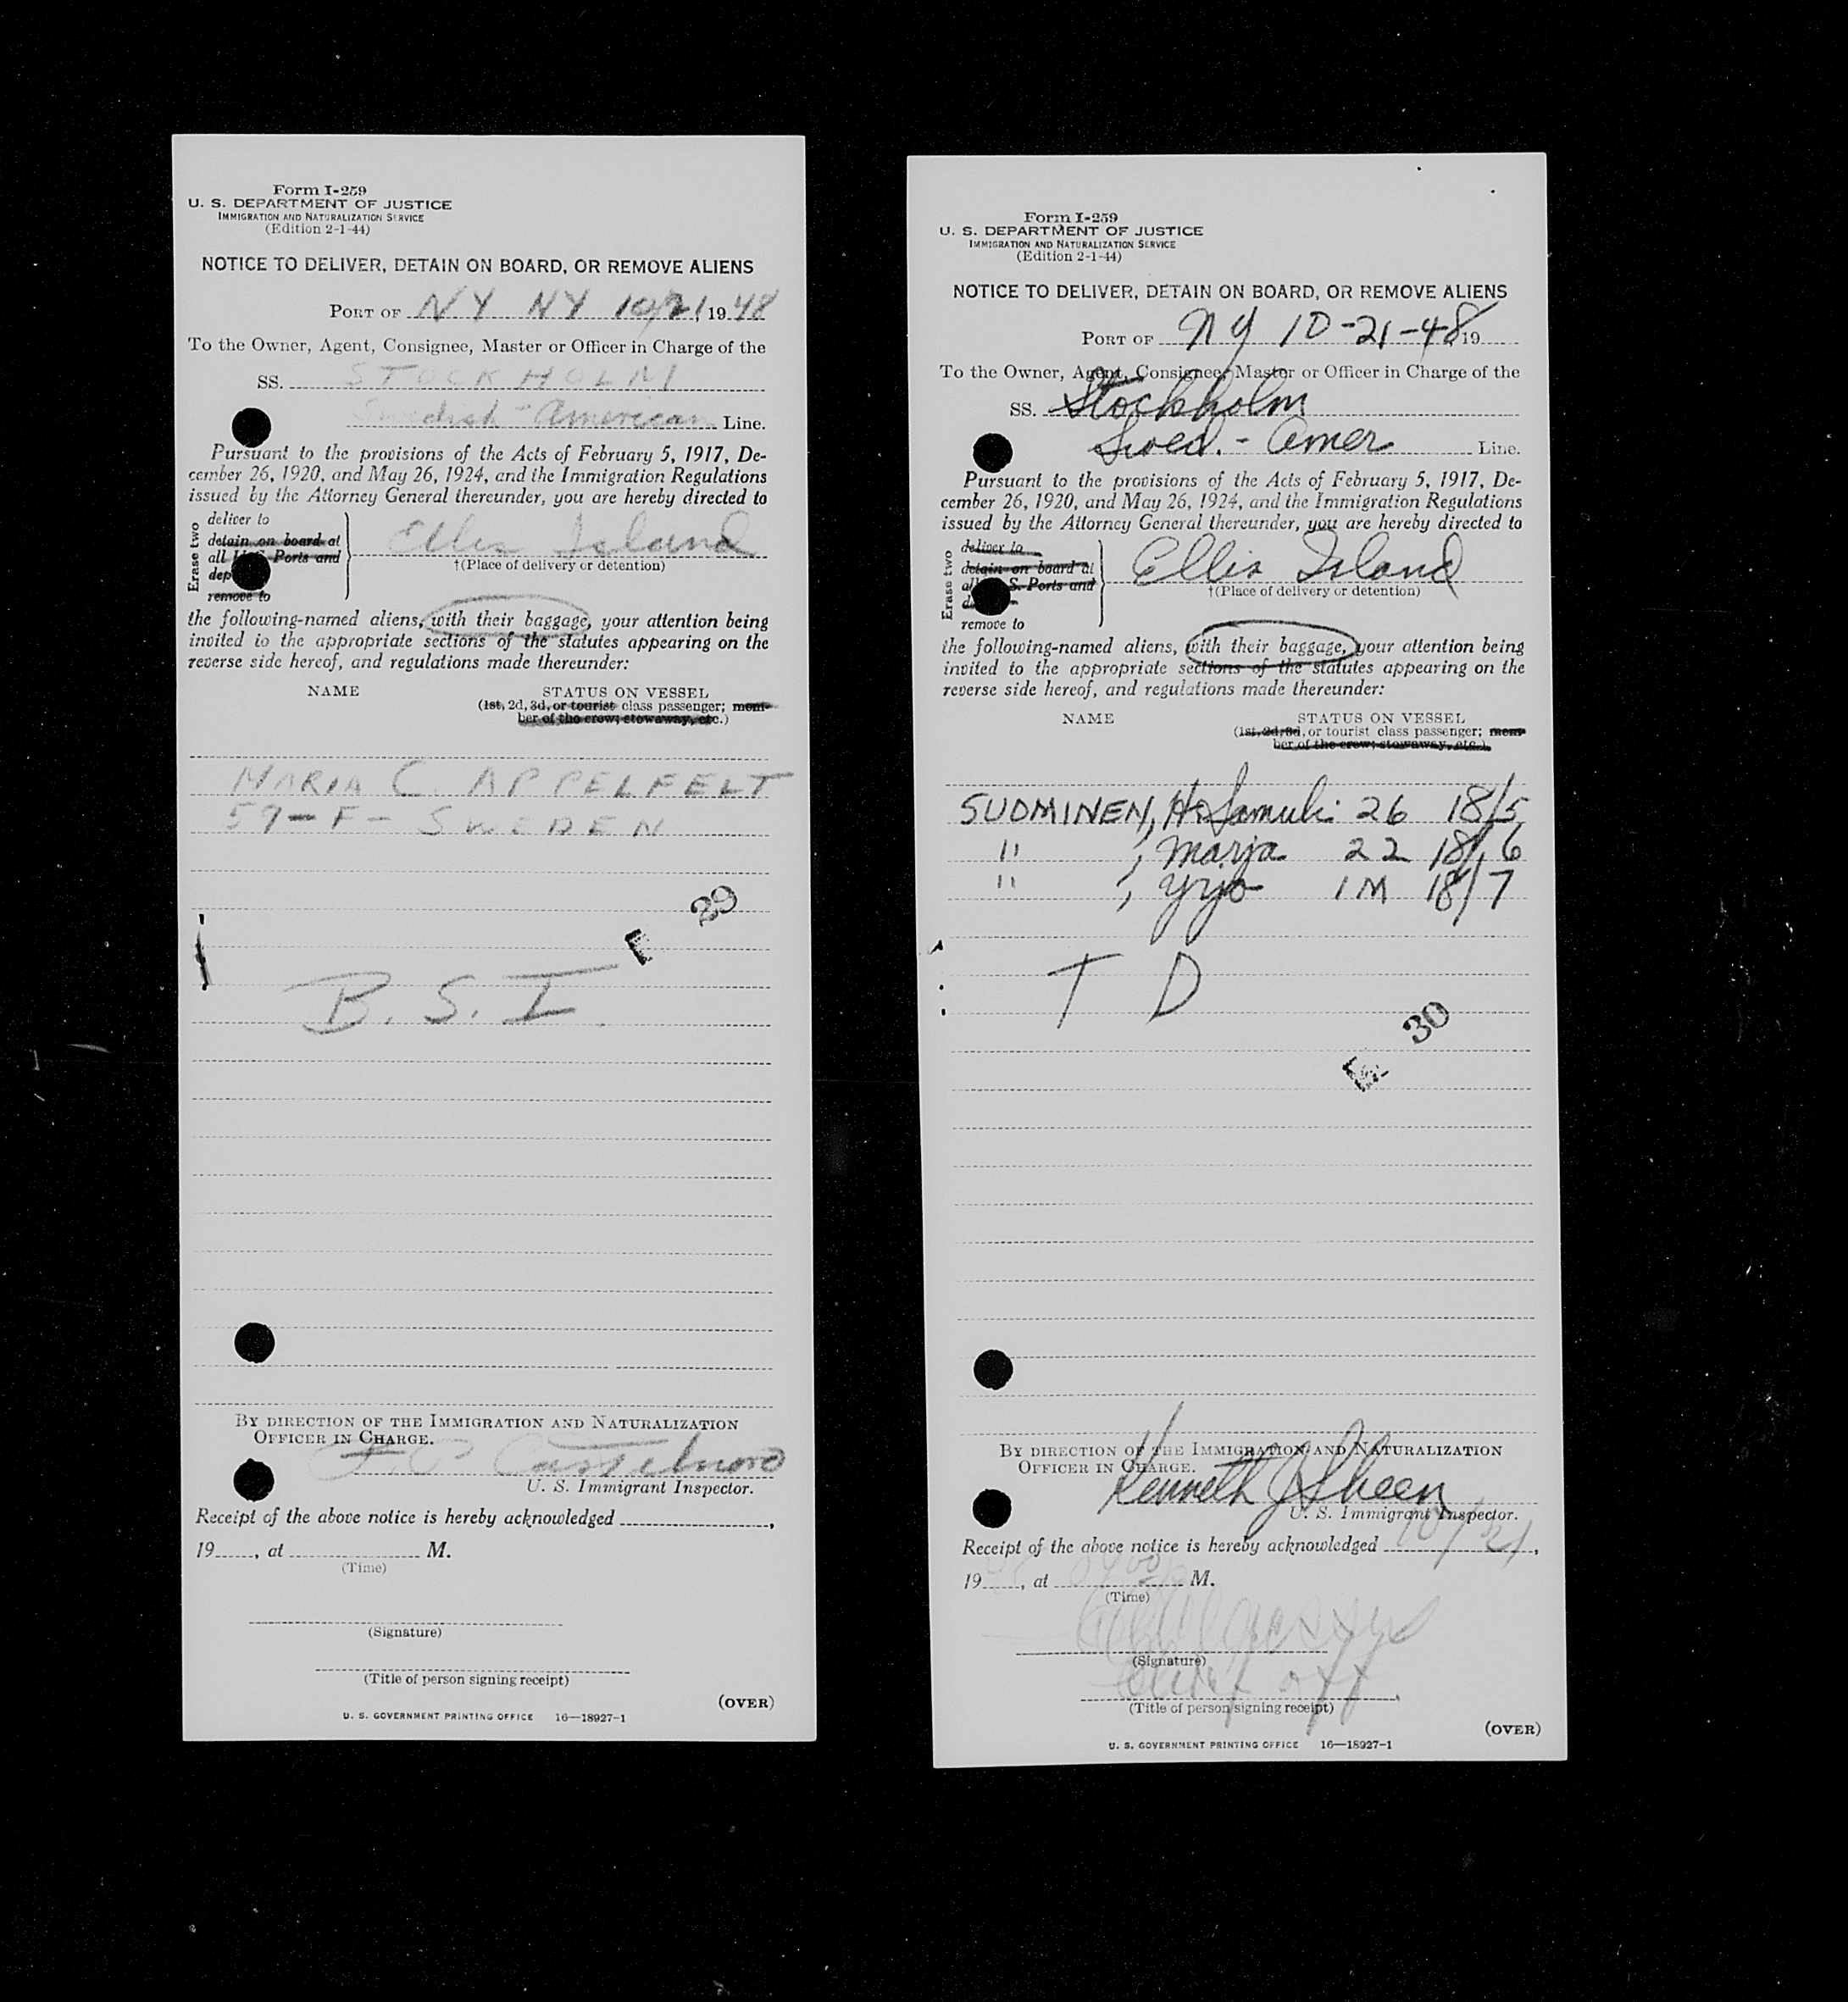 Form I-259
U. S. DEPARTMENT OF JUSTICE
IMMIGRATION AND NATURALIZATION SERVICE
(Edition 2-1-44)
NOTICE TO DELIVER, DETAIN ON BOARD, OR REMOVE ALIENS
PORT OF NY NY 10/21, 1948
To the Owner, Agent, Consignee, Master or Officer in Charge of the
SS. STOCKHOLM
Swedish-American Line.
Pursuant to the provisions of the Acts of February 5, 1917, De-
cember 26, 1920, and May 26, 1924, and the Immigration Regulations
issued by the Attorney General thereunder, you are hereby directed to
Erase two
deliver to
detain on board at
all Ports and
dep
remove to
Ellis Island
†(Place of delivery or detention)
the following-named aliens, with their baggage, your attention being
invited to the appropriate sections of the statutes appearing on the
reverse side hereof, and regulations made thereunder:
NAME STATUS ON VESSEL
(1st, 2d, 3d, or tourist class passenger; mem-
ber of the crew; stowaway, etc.)
MARIA C. APPELFELT
59-F- SWEDEN
29
B.S.I.
BY DIRECTION OF THE IMMIGRATION AND NATURALIZATION
OFFICER IN CHARGE.
U. S. Immigrant Inspector.
Receipt of the above notice is hereby acknowledged ,
19 , at M.
(Time)
(Signature)
(Title of person signing receipt)
(OVER)
U. S. GOVERNMENT PRINTING OFFICE 16—18927-1
Form I-259
U. S. DEPARTMENT OF JUSTICE
IMMIGRATION AND NATURALIZATION SERVICE
(Edition 2-1-44)
NOTICE TO DELIVER, DETAIN ON BOARD, OR REMOVE ALIENS
PORT OF NY 10-21-48 19
To the Owner, Agent, Consignee, Master or Officer in Charge of the
SS. Stockholm
Swed.-Amer Line.
Pursuant to the provisions of the Acts of February 5, 1917, De-
cember 26, 1920, and May 26, 1924, and the Immigration Regulations
issued by the Attorney General thereunder, you are hereby directed to
Erase two
deliver to
detain on board at
all S. Ports and
remove to
Ellis Island
†(Place of delivery or detention)
the following-named aliens, with their baggage, your attention being
invited to the appropriate sections of the statutes appearing on the
reverse side hereof, and regulations made thereunder:
NAME STATUS ON VESSEL
(1st, 2d, 3d, or tourist class passenger; mem-
ber of the crew; stowaway, etc.)
SUOMINEN, H. Samuli 26 18/5
" , Marja 22 18/6
" , Yrjo 1M 18/7
T D
30
BY DIRECTION OF THE IMMIGRATION AND NATURALIZATION
OFFICER IN CHARGE.
Kenneth J Sheen
U. S. Immigrant Inspector.
Receipt of the above notice is hereby acknowledged 10/21,
19 , at M.
(Time)
(Signature)
(Title of person signing receipt)
(OVER)
U. S. GOVERNMENT PRINTING OFFICE 16—18927-1